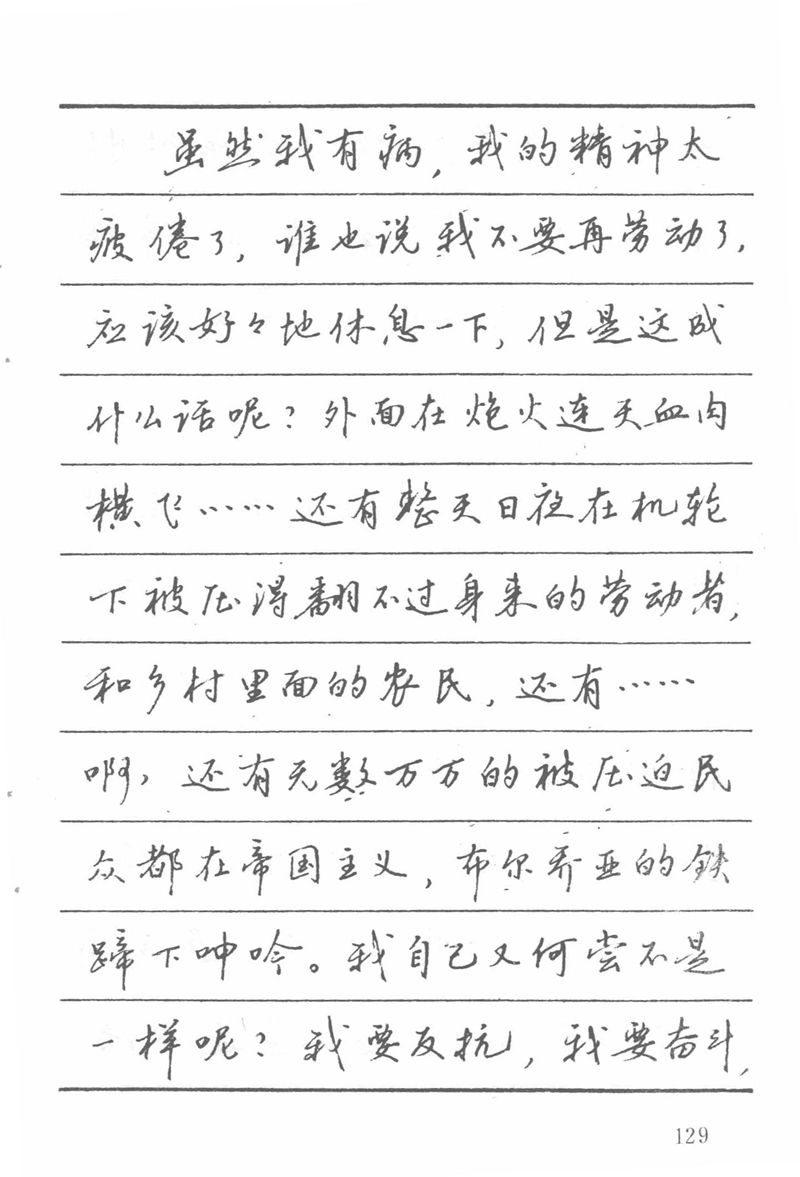 虽然我有病，我的精神太
疲倦了，谁也说我不要再劳动了，
应该好々地休息一下，但是这成
什么话呢？外面在炮火连天血肉
横飞……还有整天日夜在机轮
下被压得翻不过身来的劳动者，
和乡村里面的农民，还有……
啊，还有无数万万的被压迫民
众都在帝国主义，布尔乔亚的铁
蹄下呻吟。我自己又何尝不是
一样呢？我要反抗，我要奋斗，
129